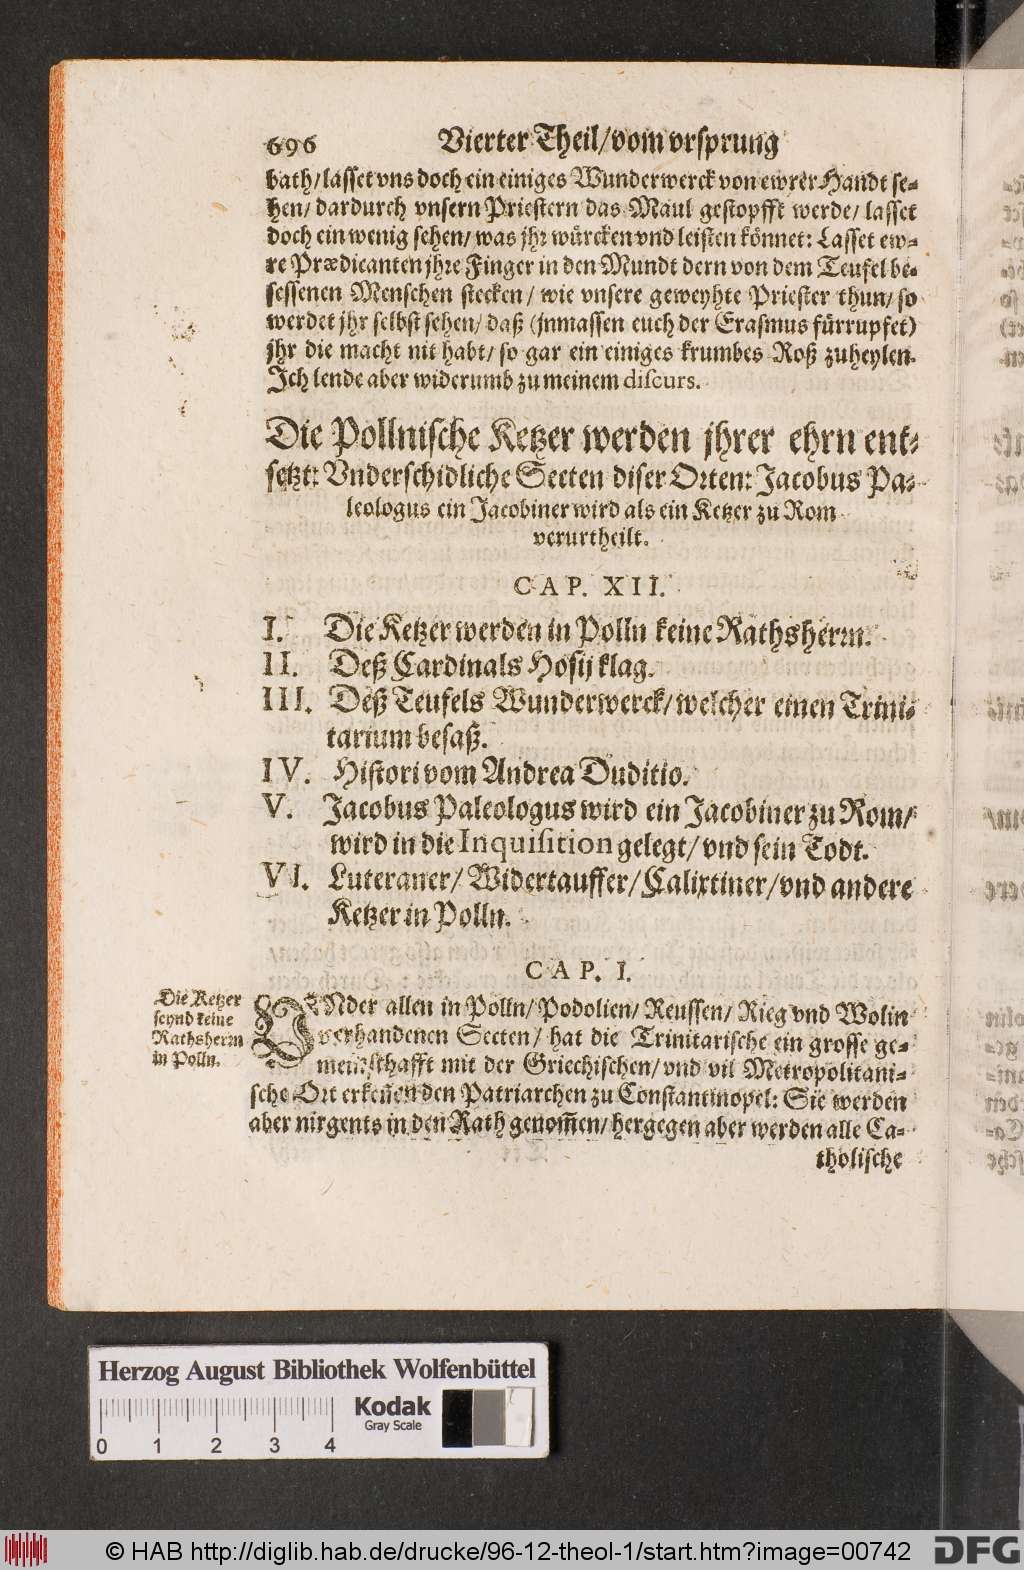 696 Vierter Theil/vom vrsprung
bath/lasset vns doch ein einiges Wunderwerck von ewrer Handt se-
hen/dardurch vnsern Priestern das Maul gestopfft werde/lasset
doch ein wenig sehen/was jhr würcken vnd leisten könnet: Lasset ew-
re Prædicanten jhre Finger in den Mundt dern von dem Teufel be-
sessenen Menschen stecken/wie vnsere geweyhte Priester thun/so
werdet jhr selbst sehen/daß (jnmassen euch der Erasmus fürrupfet)
jhr die macht nit habt/so gar ein einiges krumbes Roß zuheylen.
Ich lende aber widerumb zu meinem discurs.
Die Pollnische Ketzer werden jhrer ehrn ent-
setzt: Vnderschidliche Secten diser Orten: Jacobus Pa-
leologus ein Jacobiner wird als ein Ketzer zu Rom
verurtheilt.
CAP. XII.
I. Die Ketzer werden in Polln keine Rathsherrn.
II. Deß Cardinals Hosij klag.
III. Deß Teufels Wunderwerck/welcher einen Trini-
tarium besaß.
IV. Histori vom Andrea Duditio.
V. Jacobus Paleologus wird ein Jacobiner zu Rom/
wird in die Inquisition gelegt/vnd sein Todt.
VI. Luteraner/Widertauffer/Calixtiner/vnd andere
Ketzer in Polln.
CAP. I.
Die Ketzer
seynd keine
Rathsherrn
in Polln.
VNder allen in Polln/Podolien/Reussen/Rieg vnd Wolin
verhandenen Secten/hat die Trinitarische ein grosse ge-
meinschafft mit der Griechischen/vnd vil Metropolitani-
sche Ort erkeñen den Patriarchen zu Constantinopel: Sie werden
aber nirgents in den Rath genom̃en/hergegen aber werden alle Ca-
tholische
Herzog August Bibliothek Wolfenbüttel
Kodak
Gray Scale
0 1 2 3 4
© HAB http://diglib.hab.de/drucke/96-12-theol-1/start.htm?image=00742
DFG